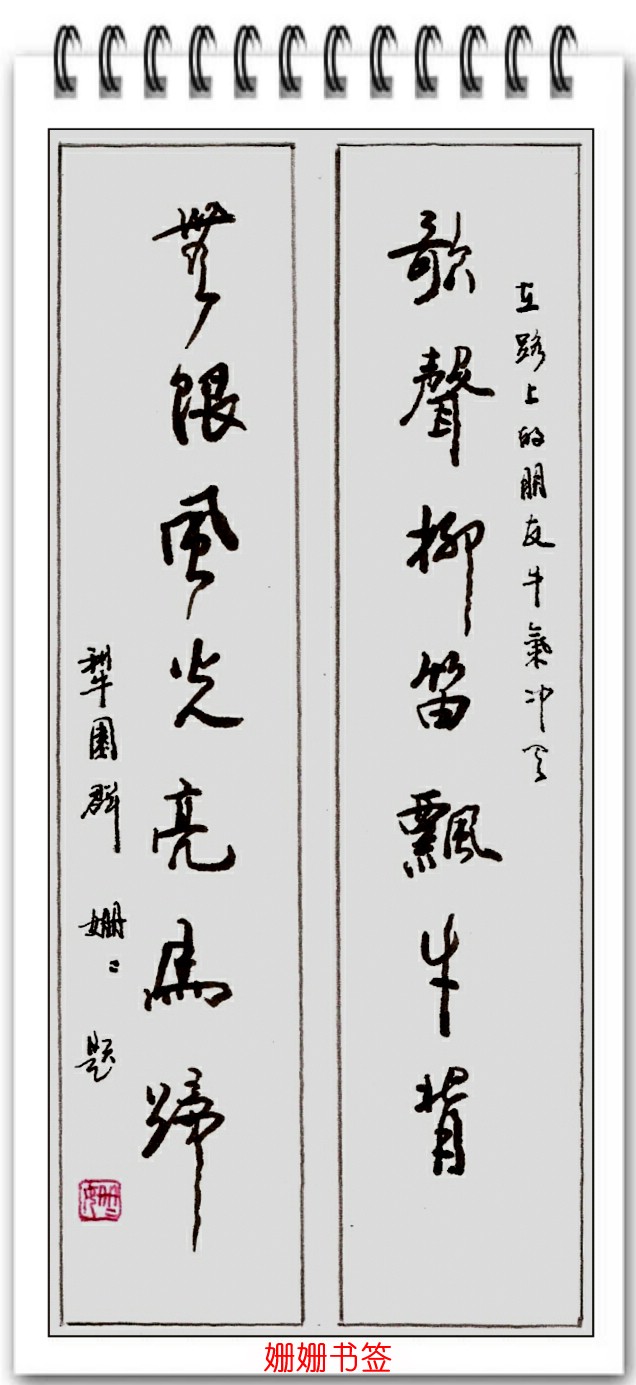 在路上的朋友牛氣冲天
歌聲柳笛飄牛背
無限風光亮馬蹄
犁園群 姗〻 题
姗姗书签